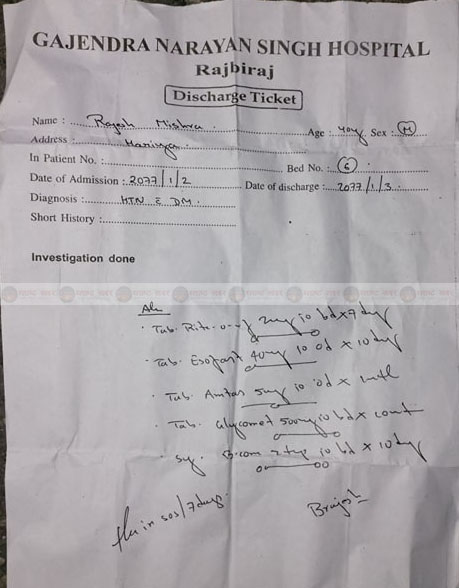 GAJENDRA NARAYAN SINGH HOSPITAL
Rajbiraj
Discharge Ticket
Name : Rajesh Mishra Age : 40y Sex : M
Address :
In Patient No. : Bed No. : 6
Date of Admission : 2077/1/2 Date of discharge : 2077/1/3
Diagnosis : HTN c̄ DM.
Short History :
Investigation done
Tab. 2mg po bd x 7 day
Tab. 40mg po od x 10 day
Tab. Amtas 5mg po od x
Tab. Glycomet 500mg po bd x cont
Syp. 2tsp po bd x 10 day
f/u in sos/7 days.